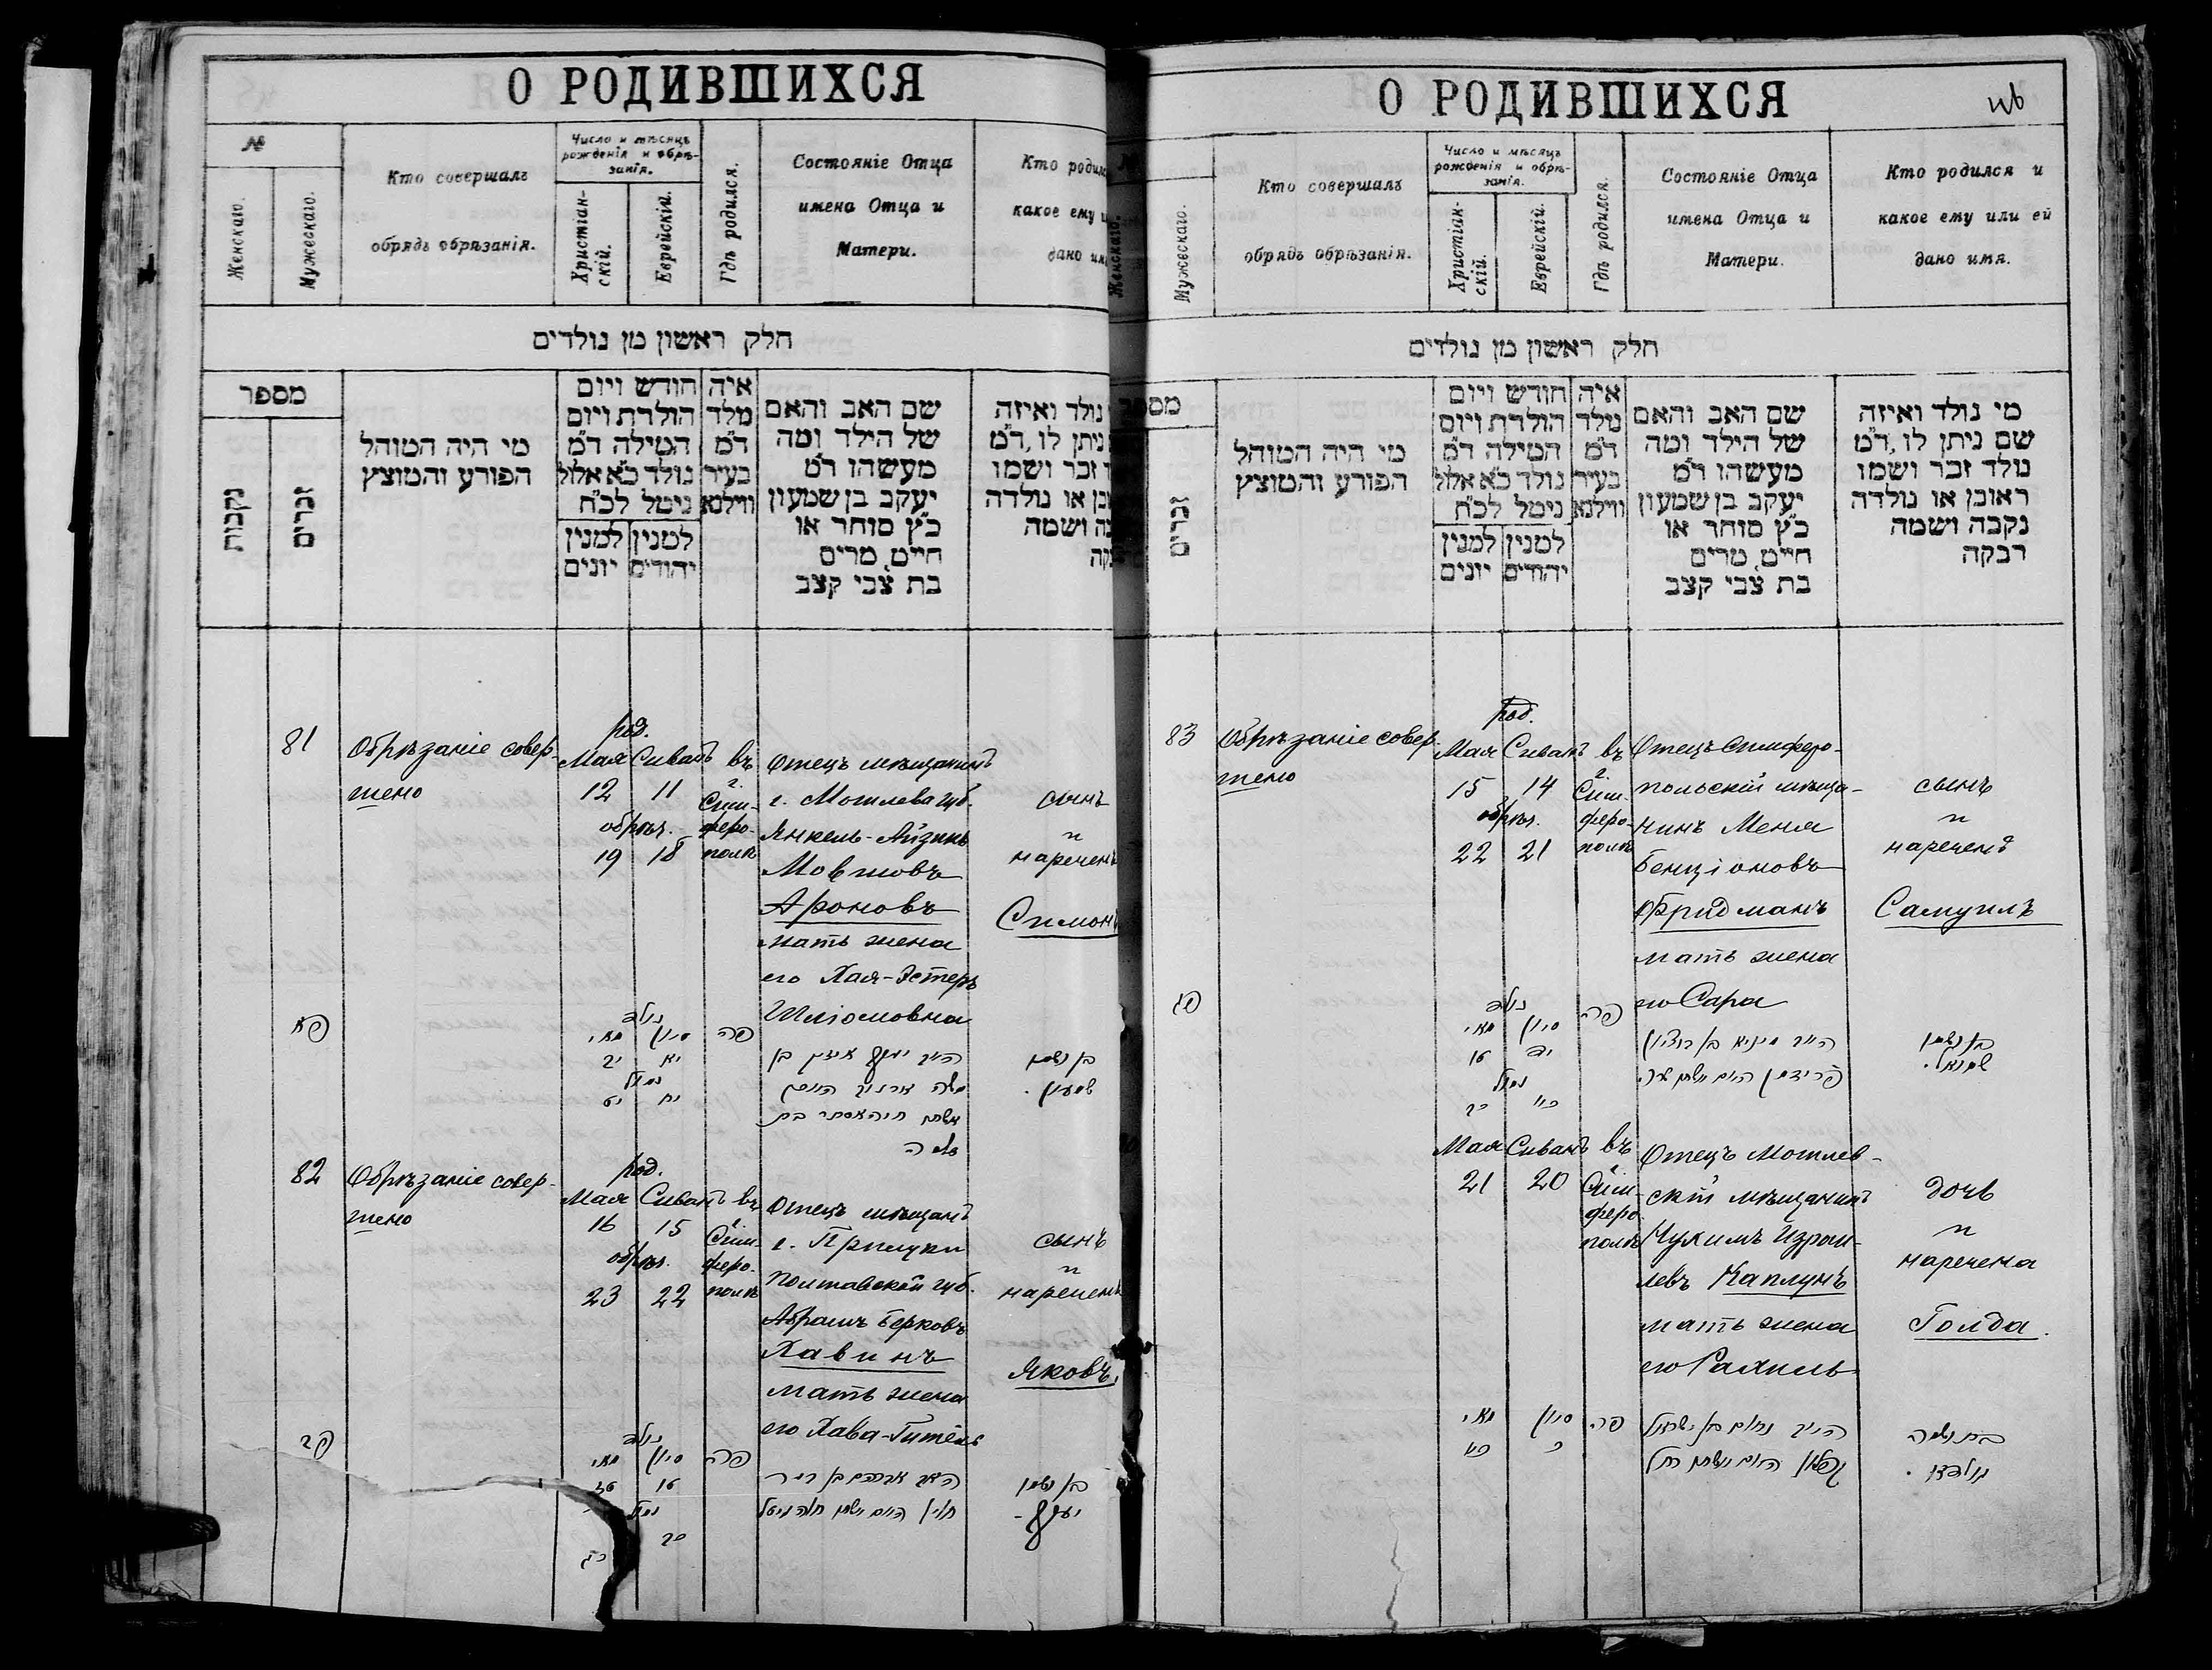 О РОДИВШИХСЯ
№
Женскаго.
Мужескаго.
Кто совершалъ
обрядъ обрѣзанія.
Число и мѣсяцъ
рожденія и обрѣ-
занія.
Христіан-
скій.
Еврейскій.
Гдѣ родился.
Состояніе Отца
имена Отца и
Матери.
Кто родился
какое ему и
дано им
חלק ראשון מן נולדים
מספר
נקבות
זכרים
מי היה המוהל
הפורע והמוצץ
חודש ויום
הולדת ויום
המילה ד״מ
נולד כ״א אלול
נימל לכ״ח
למנין
יונים
למנין
יהודים
איה
נולד
ד״מ
בעיר
ווילנא
שם האב והאם
של הילד ומה
מעשהו ד״מ
יעקב בן שמעון
כ״ץ סוחר או
חייט, מרים
בת צבי קצב
נולד ואיזה
ניתן לו, ד״מ
זכר ושמו
ובן או נולדה
בה ושמה
בקה
81
Обрѣзаніе совер-
шено
род.
Мая Сиванъ
12 11
обрѣз.
19 18
въ
г.
Сим-
феро-
полѣ
Отецъ мѣщанинъ
г. Могилева губ.
Янкель-Айзикъ
Мовшовъ
Ароновъ
мать жена
его Хая-Эстеръ
Шліомовна
сынъ
и
нареченъ
Симонъ
פא
נולד
מאי סיון
יב יא
נמול
יט יח
פה
שלמה
בן ושמו
שמעון.
82
Обрѣзаніе совер-
шено
род.
Мая Сиванъ
16 15
обрѣз.
23 22
въ
г.
Сим-
феро-
полѣ
Отецъ мѣщанъ
г. Прилуки
Полтавской губ.
Абрамъ Берковъ
Хавинъ
мать жена
его Хава-Гитель
сынъ
и
нареченъ
Яковъ.
פב
נולד
מאי סיון
טז טו
נמול
כב
כג
פה
בן ושמו
יעקב-
О РОДИВШИХСЯ
46
№
Женскаго.
Мужескаго.
Кто совершалъ
обрядъ обрѣзанія.
Число и мѣсяцъ
рожденія и обрѣ-
занія.
Христіан-
скій.
Еврейскій.
Гдѣ родился.
Состояніе Отца
имена Отца и
Матери.
Кто родился и
какое ему или ей
дано имя.
חלק ראשון מן נולדים
מספ
זכרים
מי היה המוהל
הפורע והמוצץ
חודש ויום
הולדת ויום
המילה ד״מ
נולד כ״א אלול
נימל לכ״ח
למנין
יונים
למנין
יהודים
איה
נולד
ד״מ
בעיר
ווילנא
שם האב והאם
של הילד ומה
מעשהו ד״מ
יעקב בן שמעון
כ״ץ סוחר או
חייט, מרים
בת צבי קצב
מי נולד ואיזה
שם ניתן לו, ד״מ
נולד זכר ושמו
ראובן או נולדה
נקבה ושמה
רבקה
83
Обрѣзаніе совер-
шено
род.
Мая Сиванъ
15 14
обрѣз.
22 21
въ
г.
Сим-
феро-
полѣ
Отецъ Симферо-
польскій мѣща-
нинъ Меня
Бенціоновъ
Фридманъ
мать жена
его Сара
сынъ
и
нареченъ
Самуилъ
פג
נולד
מאי סיון
טו יד
נמול
כב כא
פה
בן ושמו
שמואל.
Мая Сиванъ
21 20
въ
г.
Сим-
феро-
полѣ
Отецъ Могилев-
скій мѣщанинъ
Нухимъ Изра́и-
левъ Каплунъ
мать жена
его Рахиль
дочь
и
наречена
Голда.
מאי סיון
כא כ
פה
קפלון
בת ושמה
גולדא.